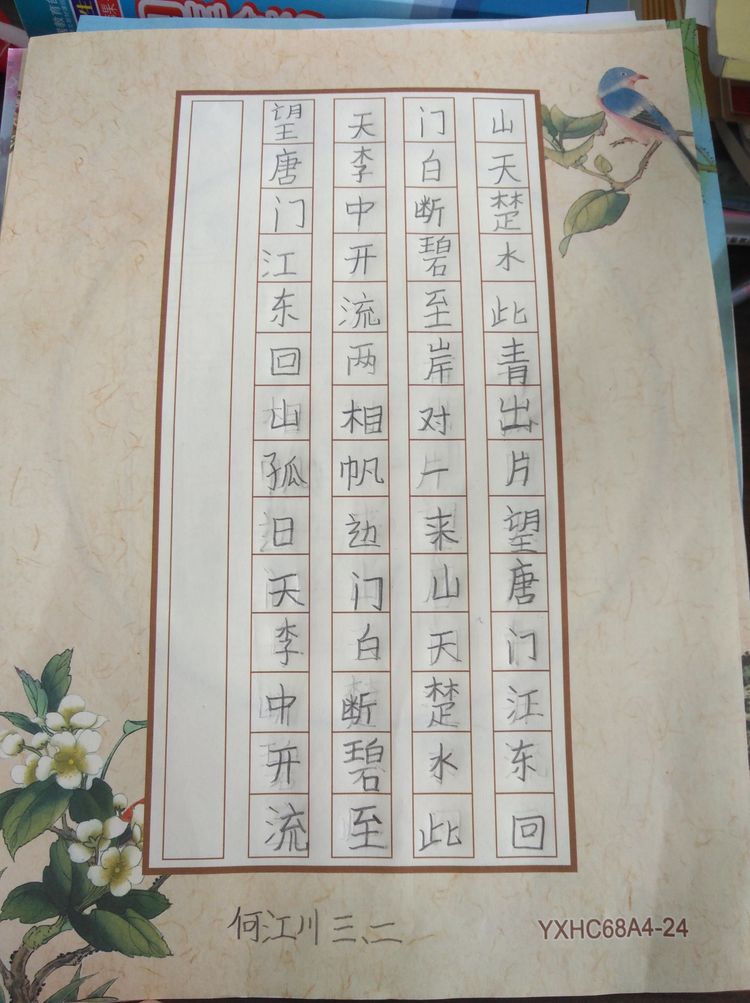 望天门山
唐李白天
门中断楚
江开碧水
东流至此
回两岸青
山相对出
孤帆一片
日边来望
天门山唐
李白天门
中断楚江
开碧水东
流至此回
何江川 三、二
YXHC68A4-24